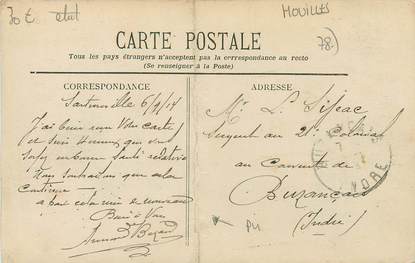 30 € état
MOUILLÉS
78.)
CARTE POSTALE
Tous les pays étrangers n'acceptent pas la correspondance au recto
(Se renseigner à la Poste)
CORRESPONDANCE
Sartrouville 6/9/14
J'ai bien reçu Votre carte
et suis heureux que vous
soyez en bonne santé relative
Nous souhaitons que cela
continue
Bien à Vous
ADRESSE
Mr L. Sijeac
Sergent au 21e Colonial
au Couvent de
Buzançais
(Indre)